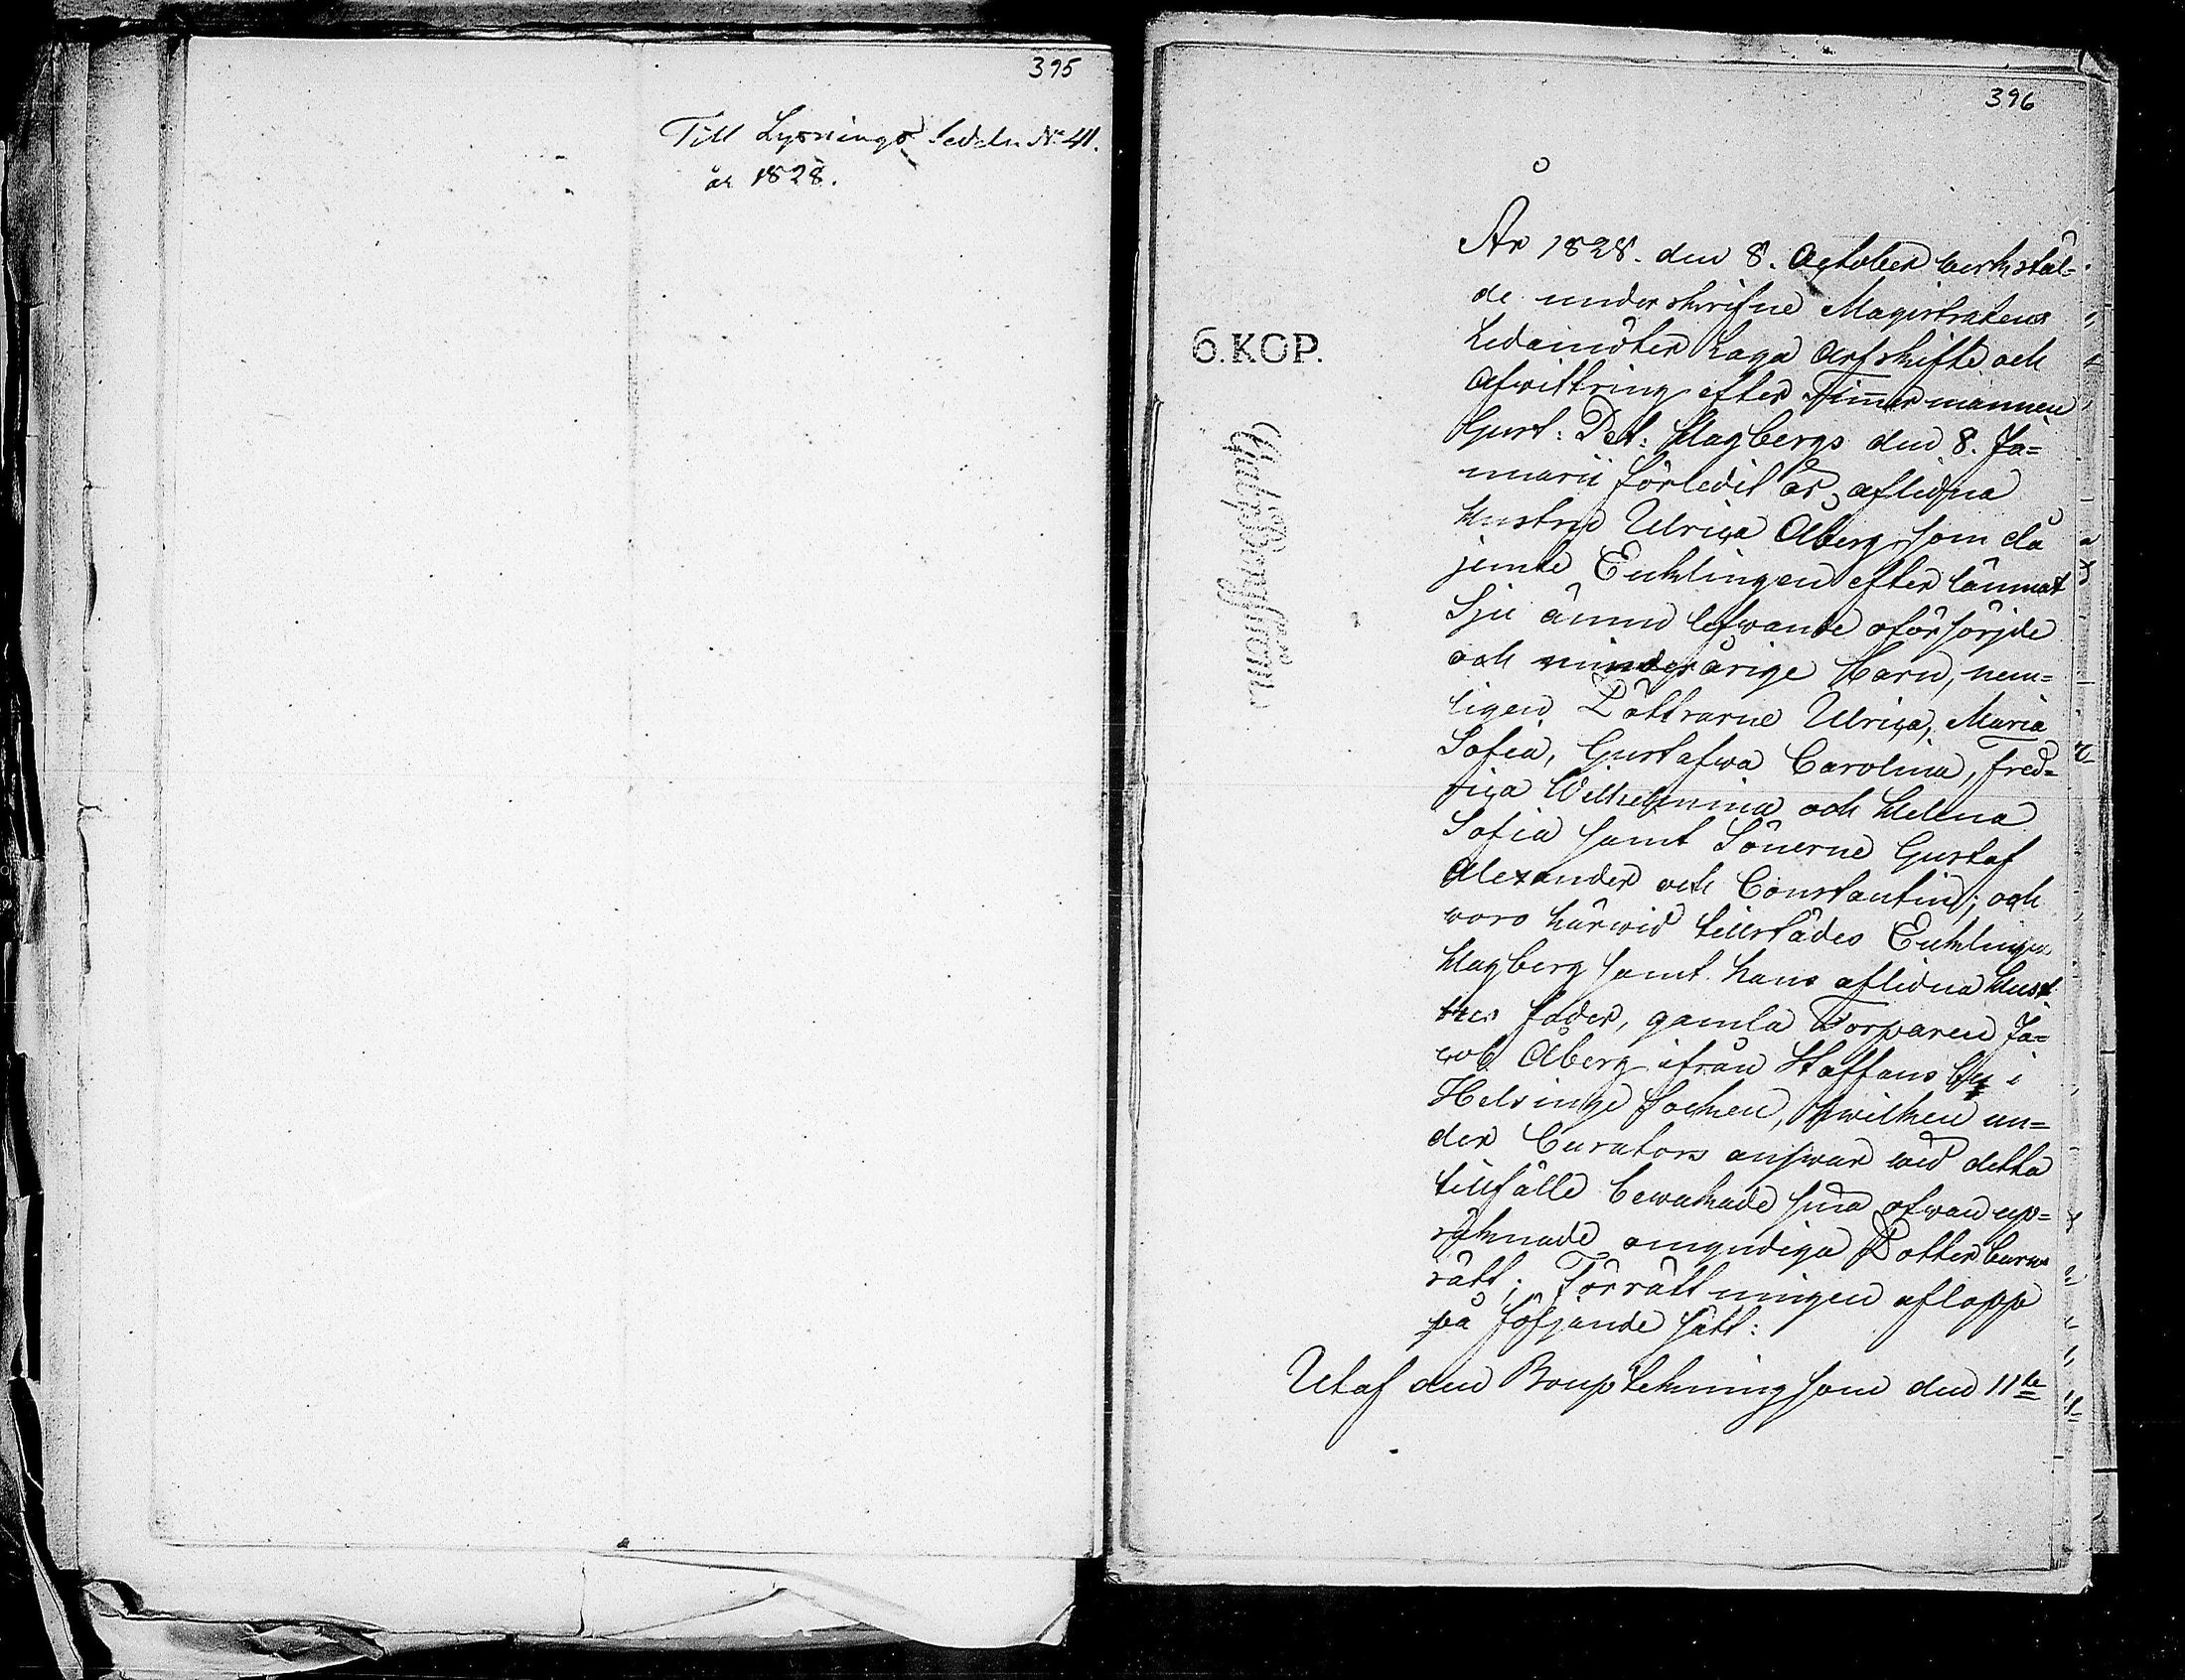 395
Till Lysnings Sedeln No 41.
år 1828.
396
År 1828. den 8. October verkstäl-
de underskrifne Magistratens
Ledamöter Laga Arfskifte och
Afwittring efter Timmermannen
Gust: Det: Hagbergs den 8. Ja-
nuarii förledit år, aflidna
Hustru Ulrica Åberg, som då
jemte Enklingen efterlämnat
Sju ännu lefwande oförsörjde
och minderårige Barn, nem-
ligen Döttrarne Ulrica, Maria
Sofia, Gustafwa Carolina, Fred-
rica Wilhelmina och Helena
Sofia samt Sönerne Gustaf
Alexander och Constantin; och
woro härwid tillstädes Enklingen
Hagberg samt hans aflidna Hust
rus fader, gamla Torparen Ja-
cob Åberg ifrån Staffans by i
Helsinge Socken, hwilken un-
der Curators answar wid detta
tillfälle bewakade sina ofwan up-
räknade omyndiga Dotterbarns
rätt; Förrättningen aflopp
på följande sätt:
Utaf den Bouptekning som den 11te
6.КОР.